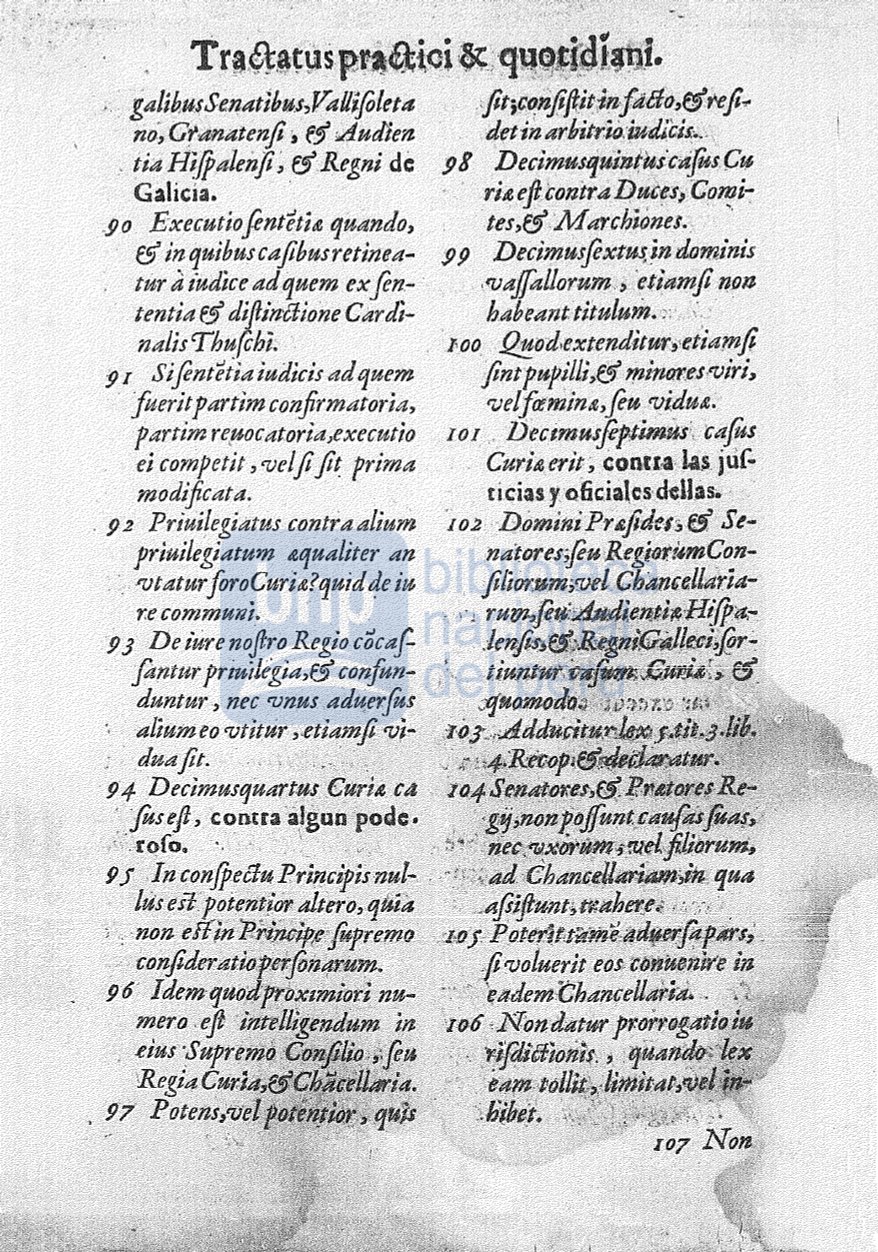 Tractatus practici & quotidiani.
galibus Senatibus, Vallisoleta
no, Granatensi, & Audien
tia Hispalensi, & Regni de
Galicia.
90 Executio sentẽtiæ quando,
& in quibus casibus retinea-
tur à iudice ad quem ex sen-
tentia & distinctione Cardi-
nalis Thuschi.
91 Si sentẽtia iudicis ad quem
fuerit partim confirmatoria,
partim reuocatoria, executio
ei competit, vel si sit prima
modificata.
92 Priuilegiatus contra alium
priuilegiatum æqualiter an
vtatur foro Curiæ? quid de iu
re communi.
93 De iure nostro Regio cõcas-
santur priuilegia, & confun-
duntur, nec vnus aduersus
alium eo vtitur, etiamsi vi-
dua sit.
94 Decimusquartus Curiæ ca
sus est, contra algun pode-
roso.
95 In conspectu Principis nul-
lus est potentior altero, quia
non est in Principe supremo
consideratio personarum.
96 Idem quod proximiori nu-
mero est intelligendum in
eius Supremo Consilio, seu
Regia Curia, & Chãcellaria.
97 Potens, vel potentior, quis
sit; consistit in facto, & resi-
det in arbitrio iudicis.
98 Decimusquintus casus Cu
riæ est contra Duces, Comi-
tes, & Marchiones.
99 Decimussextus in dominis
vassallorum, etiamsi non
habeant titulum.
100 Quod extenditur, etiamsi
sint pupilli, & minores viri,
vel fœminæ, seu viduæ.
101 Decimusseptimus casus
Curiæ erit, contra las jus-
ticias y oficiales dellas.
102 Domini Præsides, & Se-
natores, seu Regiorum Con-
siliorum, vel Chancellaria-
rum, seu Audientiæ Hispa-
lensis, & Regni Galleci, sor-
tiuntur casum Curiæ, &
quomodo.
103 Adducitur lex 5. tit. 3. lib.
4. Recop. & declaratur.
104 Senatores, & Prætores Re-
gij, non possunt causas suas,
nec vxorum, vel filiorum,
ad Chancellariam, in qua
assistunt, trahere.
105 Poterit tamẽ aduersa pars,
si voluerit eos conuenire in
eadem Chancellaria.
106 Non datur prorrogatio iu
risdictionis, quando lex
eam tollit, limitat, vel in-
hibet.
107 Non
bnp biblioteca
nacional
del perú